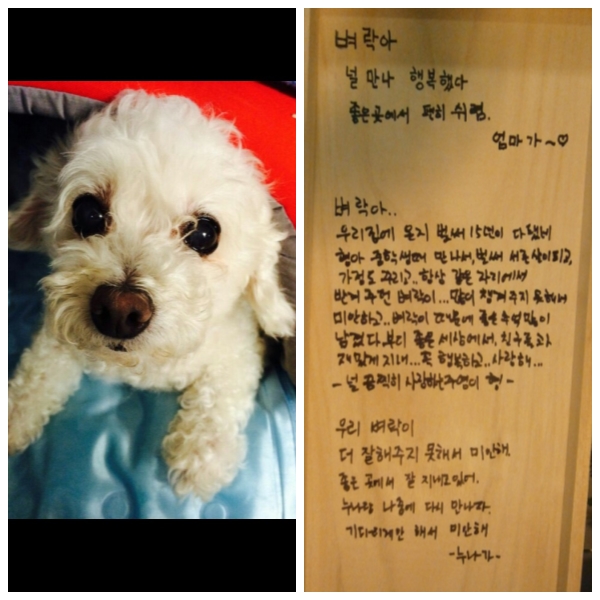 벼락아
널 만나 행복했다
좋은곳에서 편히 쉬렴.
엄마가~♡
벼락아..
우리집에 온지 벌써 15년이 다됐네
형아 중학생때 만나서, 벌써 서른살이되고,
가정도 꾸리고.. 항상 같은 자리에서
반겨주던 벼락이... 많이 챙겨주지 못해서
미안하고.. 벼락이 때문에 좋은추억 많이
남겼다. 부디 좋은 세상에서, 친구들과
재밌게 지내... 꼭 행복하고.. 사랑해...
- 널 끔찍히 사랑하는 주영이 형 -
우리 벼락이
더 잘해주지 못해서 미안해.
좋은 곳에서 잘 지내고있어.
누나랑 나중에 다시 만나자.
기다리게만 해서 미안해
-누나가-